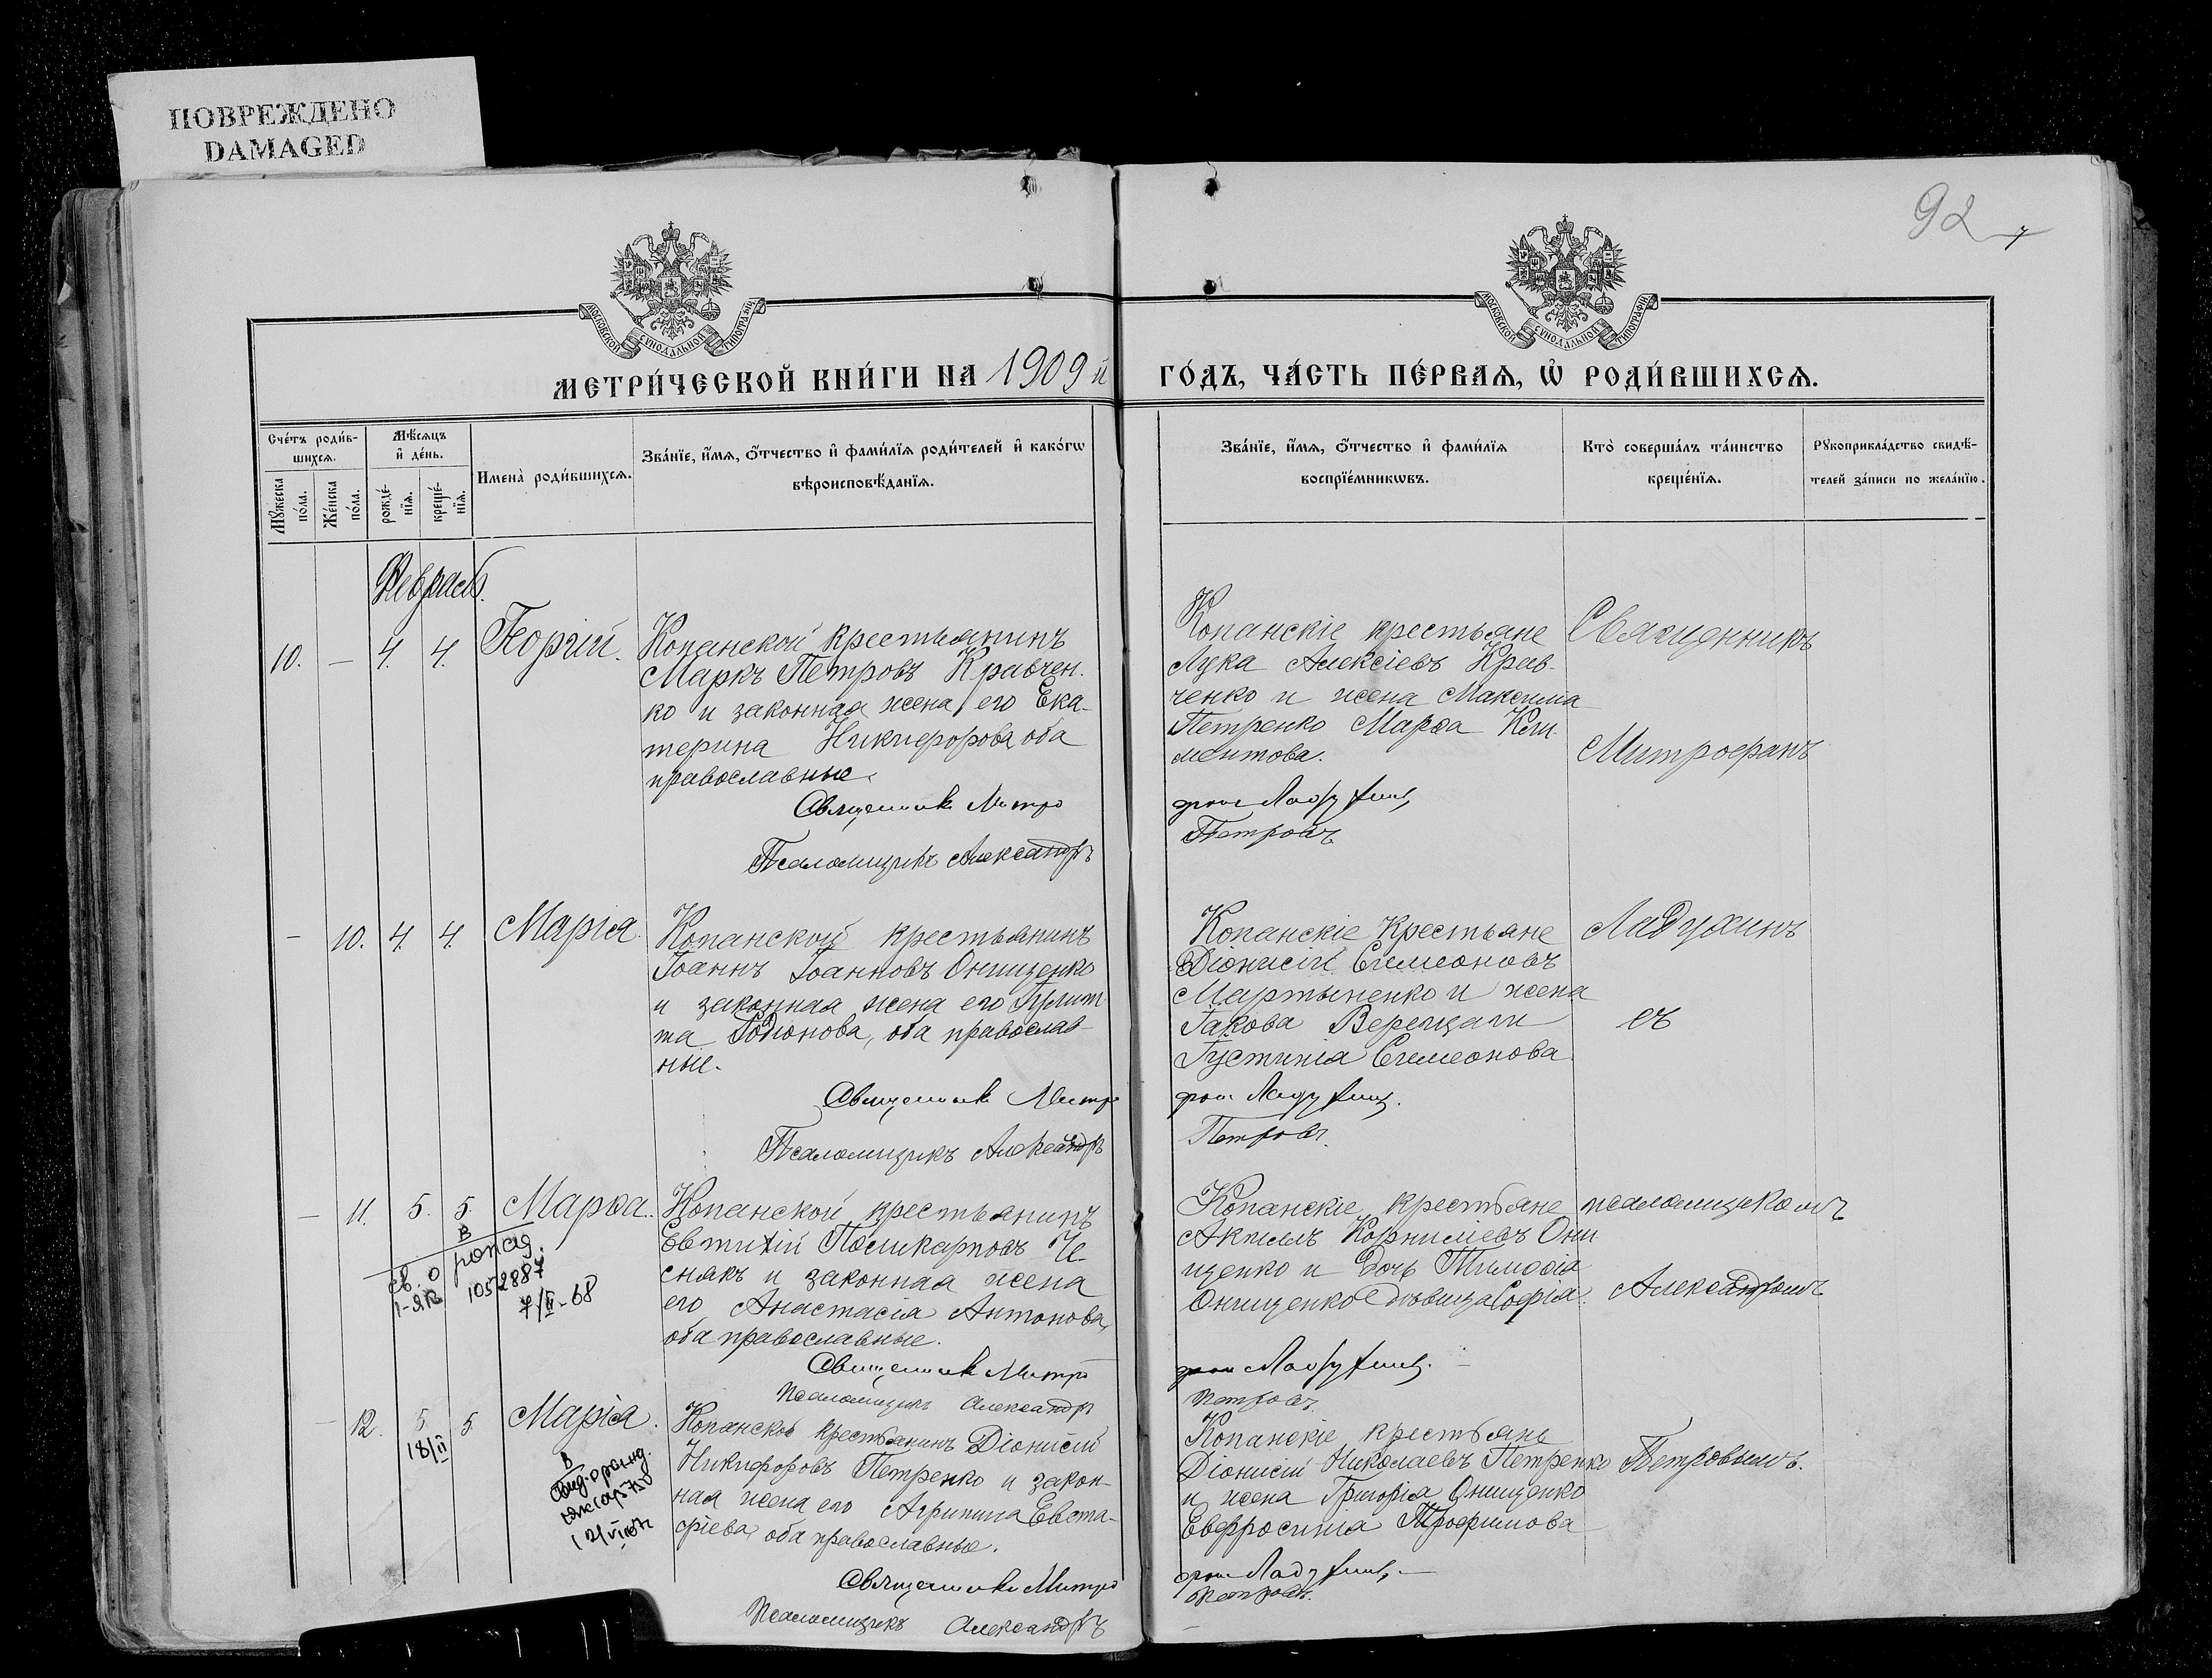 ПОВРЕЖДЕНО
DAMAGED
92
МОСКОВСКОЙ СѴНОДАЛЬНОЙ ТИПОГРАФІИ
МОСКОВСКОЙ СѴНОДАЛЬНОЙ ТИПОГРАФІИ
МЕТРИ́ЧЕСКОЙ КНИ́ГИ НА 1909 й ГО́ДЪ, ЧА́СТЬ ПЕ́РВАѦ, Ѡ҆ РОДИ́ВШИХСѦ.
Сче́тъ роди́в-
шихсѧ.
Мꙋ́жеска по́ла.
Же́нска по́ла.
Мѣ́сѧцъ и҆ де́нь.
рожде́-
нїѧ.
креще́-
нїѧ.
Имена̀ роди́вшихсѧ.
Зва́нїе, и҆́мѧ, ѻ҆́тчество и҆ фами́лїѧ роди́телей и҆ како́гѡ
вѣроисповѣ́данїѧ.
Зва́нїе, и҆́мѧ, ѻ҆́тчество и҆ фами́лїѧ
воспрїе́мникѡвъ.
Кто̀ соверша́лъ та́инство
креще́нїѧ.
Рꙋкоприкла́дство свидѣ́-
телей за́писи по жела́нїю.
Февраль.
10. — 4. 4. Георгій.
Копанской крестьянинъ
Маркъ Петровъ Кравчен-
ко и законная жена его Ека-
терина Никифорова, оба
православные.
Священникъ Митро
Псаломщикъ Александръ
Копанскіе крестьяне
Лука Алексіевъ Крав-
ченко и жена Максима
Петренко Марѳа Кли-
ментова.
фанъ Ладухинъ
Петровъ
Священникъ
Митрофанъ
— 10. 4. 4. Марія.
Копанской крестьянинъ
Іоаннъ Іоанновъ Онищенко
и законная жена его
та Родіонова, оба православ-
ные.
Священникъ Митро
Псаломщикъ Александръ
Копанскіе крестьяне
Діонисій Симеоновъ
Мартыненко и жена
Іакова Верещаги
Іустинія Симеонова
фанъ Ладухинъ.
Петровъ.
Ладухинъ
съ
— 11. 5. 5. Марѳа.
В
св. о рожд.
1-ЯК 1052887
7/II-68
Копанской крестьянинъ
Евтихій Поликарповъ Че-
снякъ и законная жена
его Анастасія Антонова,
оба православные.
Священникъ Митро
Псаломщикъ Александръ
Копанскіе крестьяне
Акила Корниліевъ Они-
щенко и дочь Тимоѳія
Онищенко дѣвица Софія.
фанъ Ладухинъ.
Петровъ.
псаломщикомъ
Александромъ
— 12. 5. 5. Марія.
18/II
В
Копанской крестьянинъ Діонисій
Никифоровъ Петренко и закон-
ная жена его Агрипина Евста-
фіева, оба православные.
Священникъ Митро
Псаломщикъ Александръ
Копанскіе крестьяне
Діонисій Николаевъ Петренко
и жена Григорія Онищенко
Евфросинія Трофимова
фанъ Ладухинъ.
Петровъ.
Петровымъ.